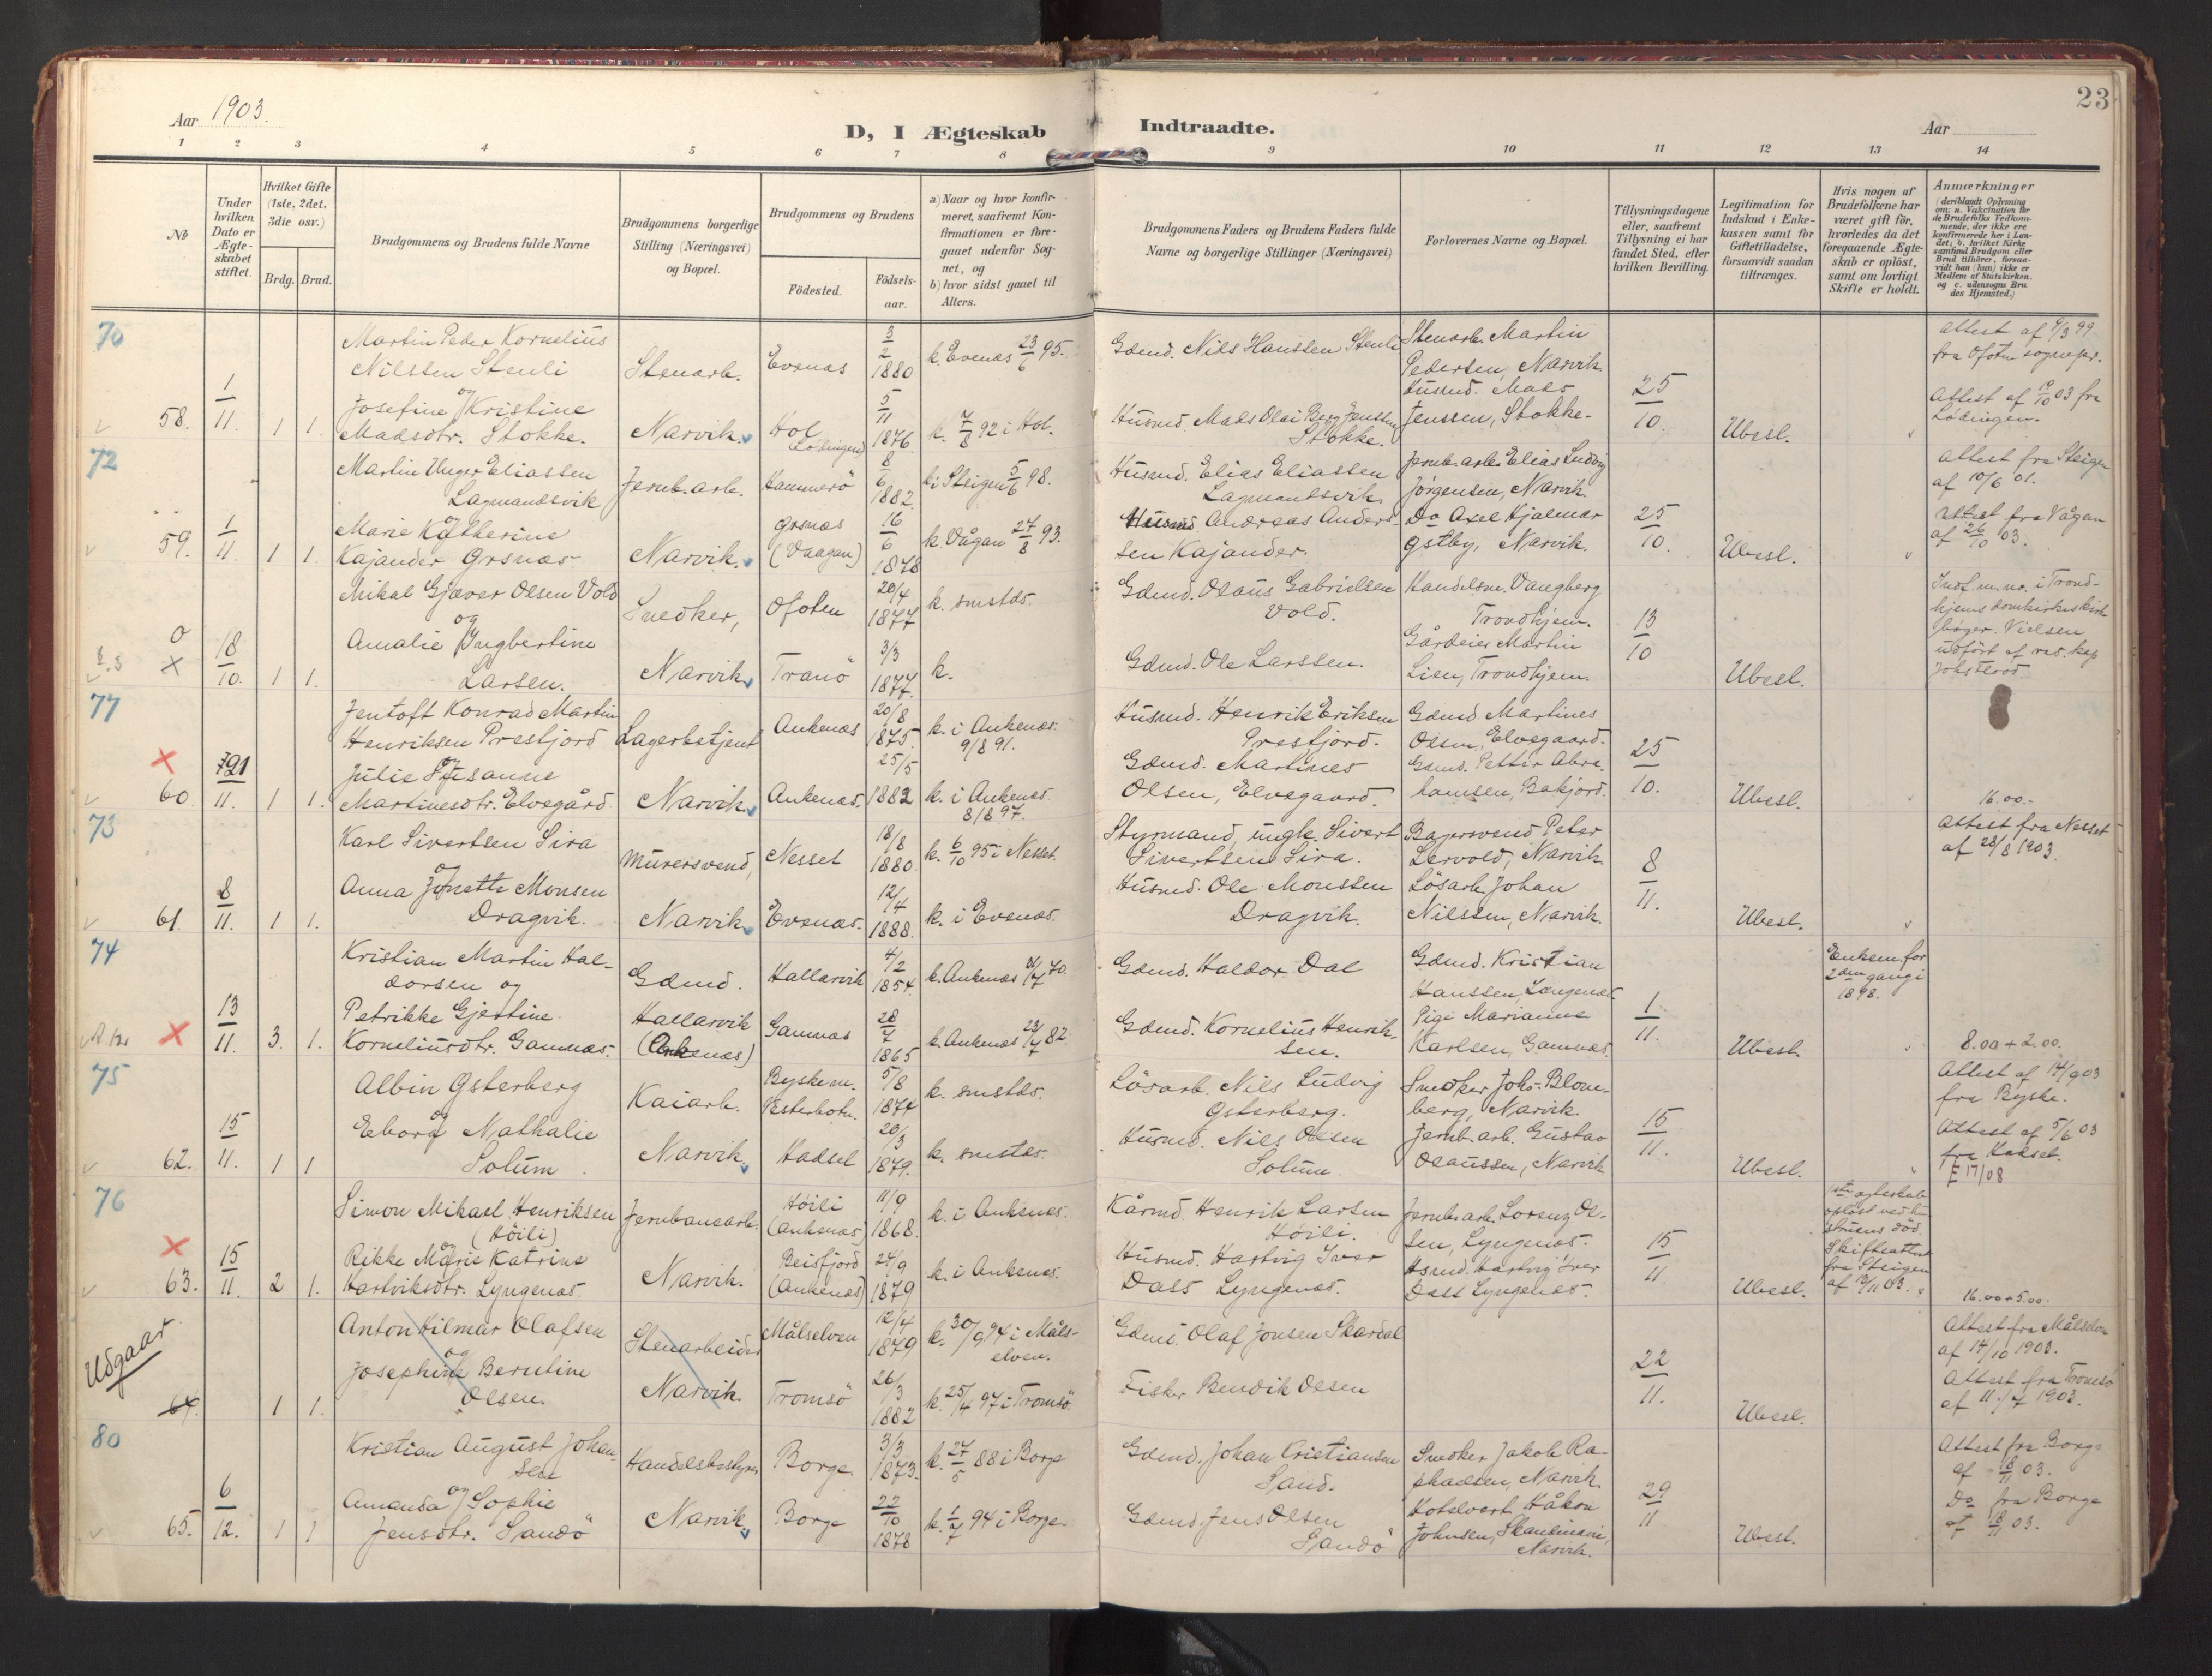 23
Aar 1903.
D, I Ægteskab Indtraadte.
Aar
1 2 3 4 5 6 7 8 9 10 11 12 13 14
№
Under hvilken Dato er Ægteskabet stiftet.
Hvilket Gifte (1ste, 2det, 3die osv.)
Brdg. Brud.
Brudgommens og Brudens fulde Navne
Brudgommens borgerlige Stilling (Næringsvei) og Bopæl.
Brudgommens og Brudens
Födested.
Födsels-aar.
a) Naar og hvor konfirmeret, saafremt Konfirmationen er foregaaet udenfor Sognet, og
b) hvor sidst gaaet til Alters.
Brudgommens Faders og Brudens Faders fulde Navne og borgerlige Stillinger (Næringsvei)
Forlovernes Navne og Bopæl.
Tillysningsdagene eller, saafremt Tillysning ei har fundet Sted, efter hvilken Bevilling.
Legitimation for Indskud i Enkekassen samt for Giftetilladelse, forsaavidt saadan tiltrænges.
Hvis nogen af Brudefolkene har været gift för, hvorledes da det foregaaende Ægteskab er oplöst, samt om lovligt Skifte er holdt.
Anmærkninger
(deriblandt Oplysning om: a. Vaccination for de Brudefolks Vedkommende, der ikke ere konfirmerede her i Landet; b. hvilket Kirkesamfund Brudgom eller Brud tilhörer, forsaavidt han (hun) ikke er Medlem af Statskirken. og c. udensogns Brudes Hjemsted.)
70
Martin Peder Kornelius Nilssen Stenli Stenarb. Evenæs 3/2 1880 k. Evenæs 23/6 95. Gdmd. Nils Hanssen Stenli Stenarb. Martin Pedersen, Narvik attest af 9/3 99 fra Ofoten sognepr.
og
58. 1/11. 1 1. Josefine Kristine Madsdtr. Stokke. Narvik. Hol Lödingen 5/11 1876 k. 7/8 92 i Hol. Husmd. Mads Olai Berg Jenssen Stokke. Husmd. Mads Jenssen, Stokke. 25/10. Ubesl. Attest af 03 fra Lödingen.
72
Martin Unger Eliassen Lagmandsvik Jernb.arb. Hammerö 8/6 1882. k. i Steigen 5/6 98. Husmd. Elias Eliassen Lagmandsvik Jernb.arb. Elias Ludvig Jörgensen, Narvik. attest fra Steigen af 10/6 01.
og
59. 1/11. 1 1. Marie Katherine Kajander Grsnæs Narvik. Grsnæs (Vaagan) 16/6 1878 k. Vågan 27/8 93. Husmd Andreas Anderssen Kajander. Do Axel Hjalmar Ostby, Narvik. 25/10. Ubesl. attest fra Vågan af 26/10 03.
Mikal Gjæver Olsen Vold Snedker, Ofoten 20/4 1877 k. smstds. Gdmd. Olaus Gabrielsen Vold. Handelsm. Vangberg Trondhjem.
og
18/10. 1 1. Amalie Ingbertine Larsen. Narvik Tranö 3/3 1877 k. Gdmd. Ole Larssen. Gårdeier Martin Lien, Trondhjem. 13/10 Ubesl. Indf. u. no. i Trondhjems domkirkes kirkebøger. Vielsen udfört af res. kap
77
Jentoft Konrad Martin Henriksen Prestjord Lagerbetjent Ankenæs 20/8 1875. k. i Ankenæs. 9/8 91. Husmd. Henrik Eriksen Prestjord. Gdmd. Martines Olsen, Elvegaard.
og
60. 21/11. 1 1. Julie Susanne Martinesdtr. Elvegård. Narvik Ankenæs. 25/5 1882 k. i Ankenæs. 8/8 97. Gdmd. Martines Olsen, Elvegaard. Gdmd. Petter Abrahamsen, Bakjord. 25/10. Ubesl. 16.00.-
73
Karl Sivertsen Sira Murersvend, Nesset 18/8 1880. k. 6/10 95 i Nesset. Styrmand, ungk. Sivert Sivertsen Sira. Bagersvend Peter Lervold, Narvik. Attest fra Nesset af 28/8 1903.
og
61. 8/11. 1 1. Anna Jonette Monsen Dragvik. Narvik Evenæs. 12/4 1888. k. i Evenæs. Husmd. Ole Monssen Dragvik. Lösarb. Johan Nilssen, Narvik. 8/11. Ubesl.
74
Kristian Martin Haldorsen og Gdmd. Hallarvik 4/2 1854. k. Ankenæs /7 70. Gdmd. Haldor Dal Gdmd. Kristian Hanssen, Længenæs. Enkem. for 2den gang i 1898.
13/11. 3. 1. Petrikke Gjestine Korneliusdtr. Gamnæs. Hallarvik (Ankenæs) Gamnæs 28/7 1865 k. Ankenæs 23/7 82. Gdmd. Kornelius Henriksen. Pige Marianne Karlsen, Gamnæs. 1/11. Ubesl. 8.00 + 2.00.
75
Albin Österberg Kaiarb. Byske m. Vesterbotn. 5/8 1874 k. smstds. Lösarb. Nils Ludvig Österberg. Snedker Johs. Blomberg, Narvik. Attest af 14/9 03 fra Byske.
og
62. 15/11. 1 1 Eborg Nathalie Solum Narvik. Hadsel 20/3 1879. k. smstds. Husmd. Nils Olsen Solum Jernb.arb. Gustav Olaussen, Narvik 15/11. Ubesl. Attest af 5/6 03 fra Hadsel. E 17/08
76
Simon Mikael Henriksen (Höili) Jernbanearb. Höili (Ankenæs) 11/9 1868. k. i Ankenæs. Kårmd. Henrik Larsen Höili. Jernb.arb. Lorenz Olsen, Lyngenæs. 1ste ægteskab oplöst ved hustruens död. Skifteattest fra Steigen af 13/11 03.
og
63. 15/11. 2 1. Rikke Marie Katrine Hartviksdtr. Lyngenæs. Narvik. Beisfjord (Ankenæs) 24/9 1879 k. i Ankenæs. Husmd. Hartvig Iver Dass Lyngenæs. Hsmd. Hartvig Iver Dass Lyngenæs. 15/11. Ubesl. 16.00 + 5.00.
Udgaar
Anton Hilmar Olafsen Stenarbeider Målselven 12/4 1879 k. 30/9 94 i Målselven. Gdmd. Olaf Jonsen Skardal Attest fra Målselven af 14/10 1903.
og
64. 1 1. Josephine Berntine Olsen. Narvik. Tromsö 26/3 1882 k. 25/4 97 i Tromsö. Fisker Bendik Olsen 22/11. Ubesl. Attest fra Tromsö af 11./7 1903.
80
Kristian August Johansen Handelsbestyrer Borge. 3/3 1873. k. 27/5 88 i Borge Gdmd. Johan Kristiansen Sand. Snedker Jakob Rafaelsen, Narvik. Attest fra Borge af 18/11 03.
og
65. 6/12. 1 1 Amanda Sophie Jensdtr. Sandö Narvik Borge 22/10 1878 k. 1/7 94 i Borge. Gdmd. Jens Olsen Sandö Hotelvert Håkon Johnsen, Skandinavie, Narvik. 29/11 Ubesl. Do fra Borge af 18/11 03.